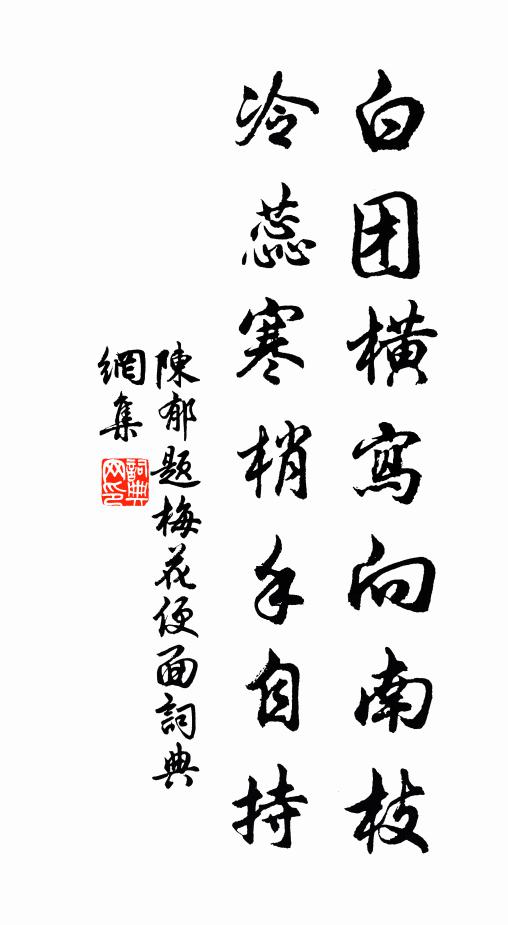 白团横寫向南枝
冷蕊寒梢手自持
陳郁题梅花便面詞典
網集
詞典
网印